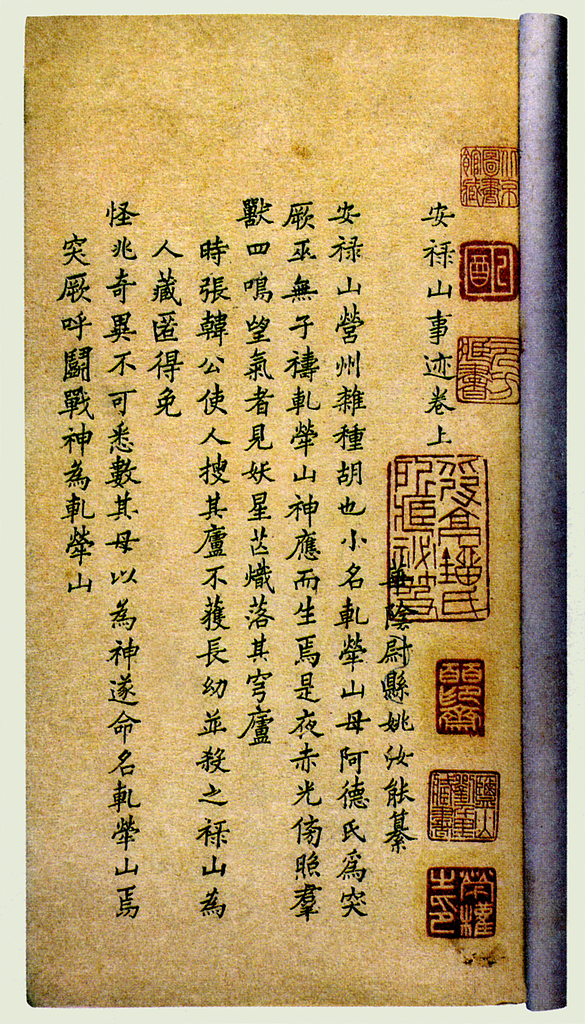 北京圖書館藏
安祿山事迹卷上
華陰尉縣姚汝能纂
安祿山營州雜種胡也小名軋犖山母阿德氏爲突
厥巫無子禱軋犖山神應而生焉是夜赤光傍照羣
獸四鳴望氣者見妖星芒熾落其穹廬
時張韓公使人搜其廬不獲長幼並殺之祿山為
人藏匿得免
怪兆奇異不可悉數其母以為神遂命名軋犖山焉
突厥呼鬭戰神為軋犖山